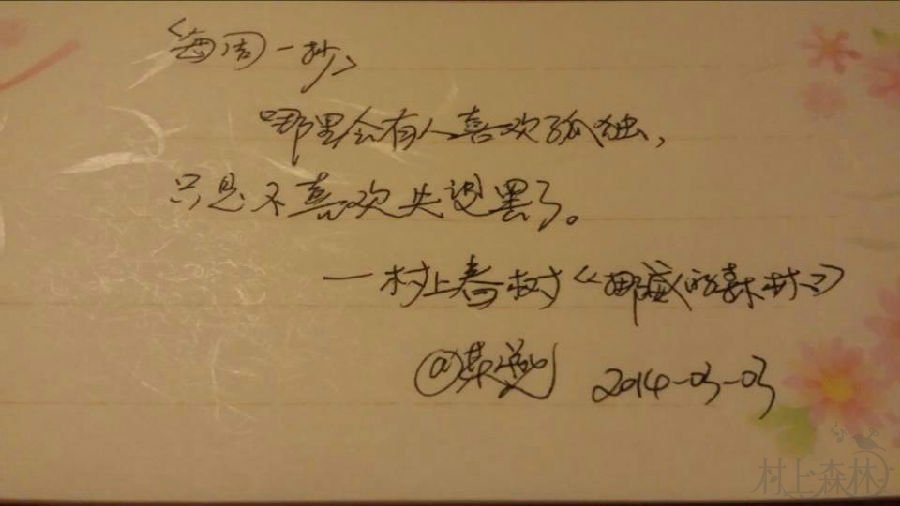 《每周一抄》
哪里会有人喜欢孤独，
只是不喜欢失望罢了。
—村上春树《挪威的森林》
@
2014-03-03
村上森林